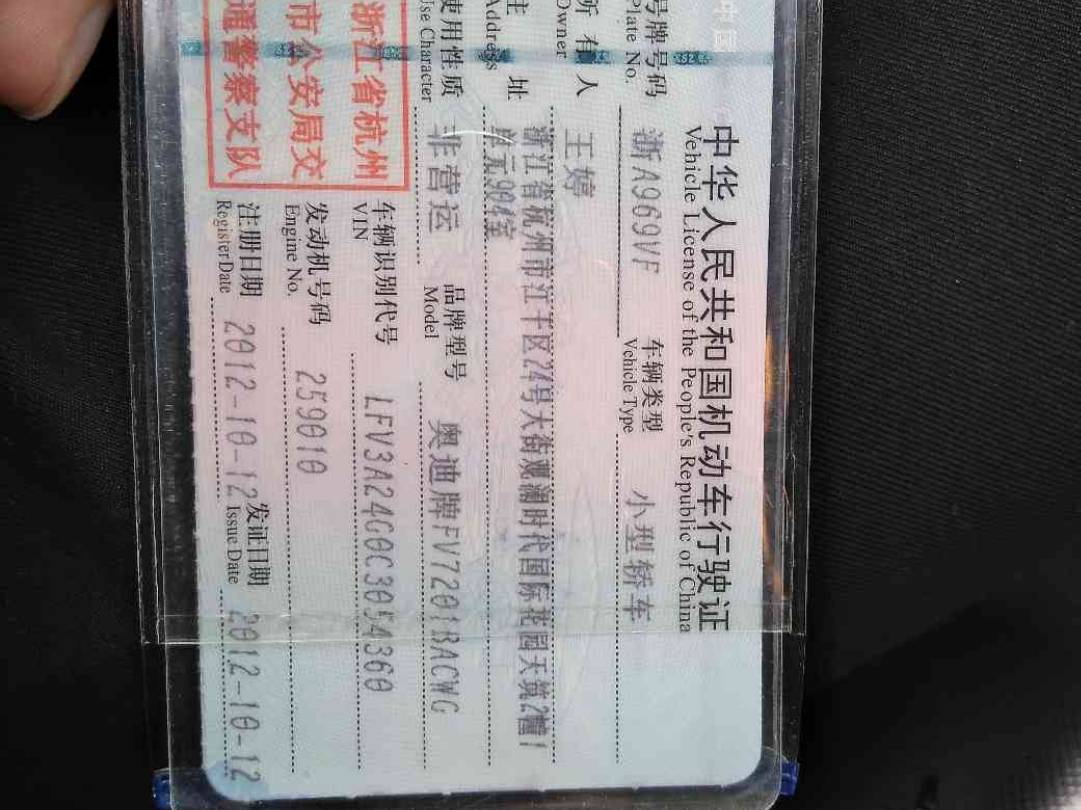 中国
中华人民共和国机动车行驶证
Vehicle License of the People's Republic of China
号牌号码 浙A969VF 车辆类型 小型轿车
Plate No. Vehicle Type
所有人 王婷
Owner
住址 浙江省杭州市江干区24号大街观澜时代国际花园天筑2幢1
Address 单元904室
使用性质 非营运 品牌型号 奥迪牌FV7201BACWG
Use Character Model
浙江省杭州
市公安局交
通警察支队
车辆识别代号 LFV3A24G0C3054360
VIN
发动机号码 259010
Engine No.
注册日期 2012-10-12 发证日期 2012-10-12
Register Date Issue Date